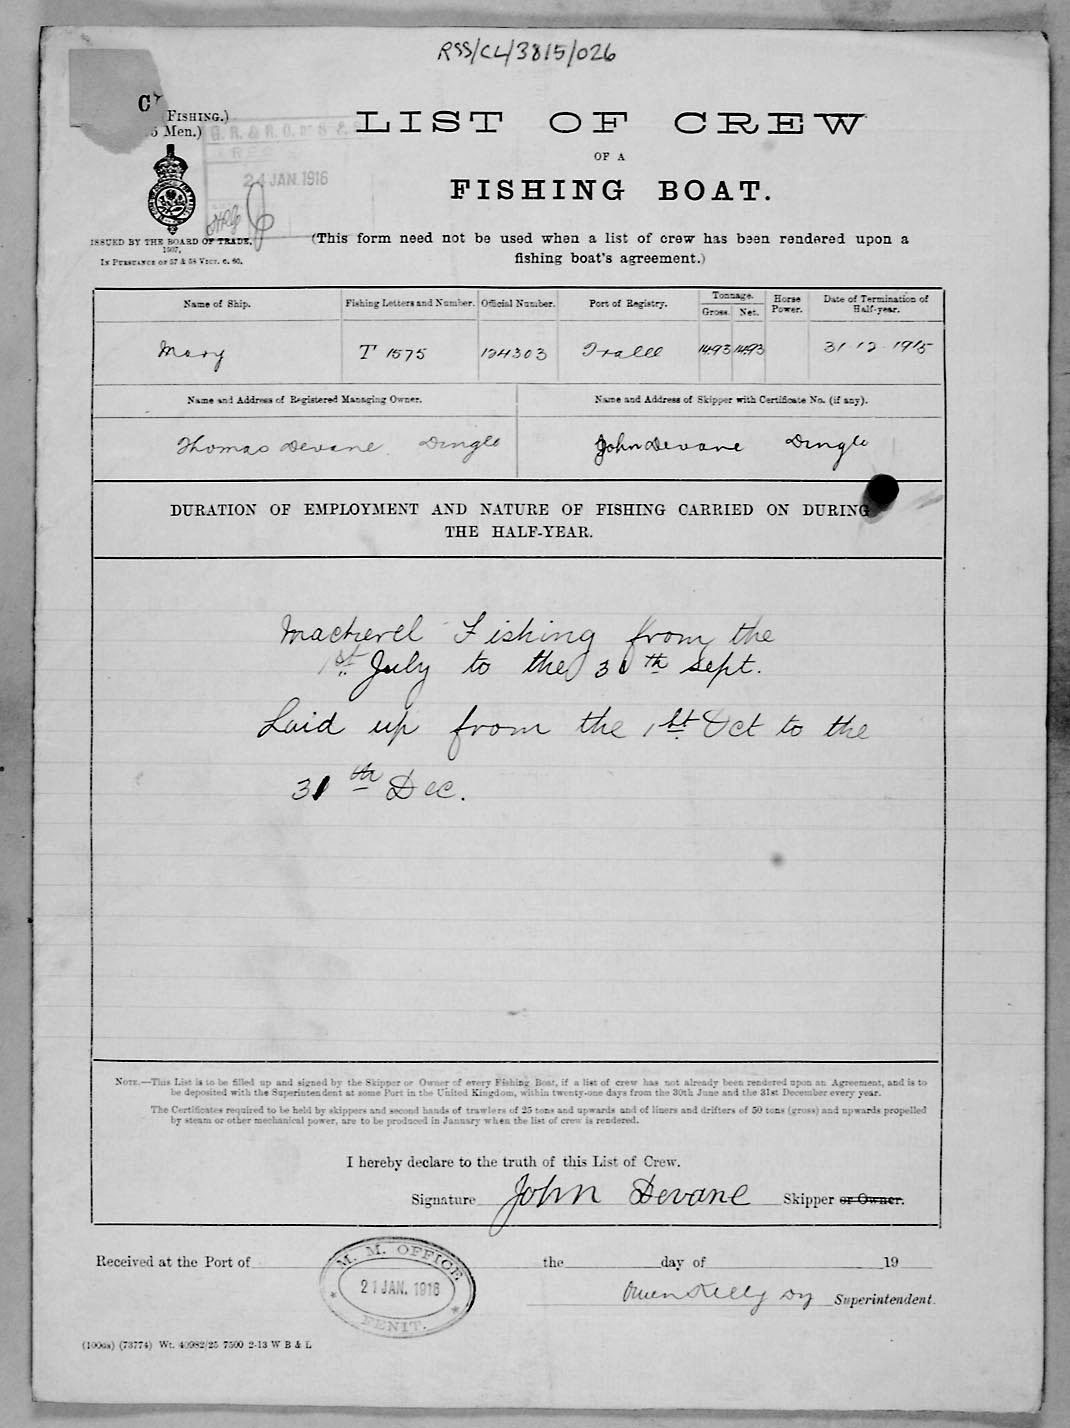 RSS/CL/3815/026
(Fishing.)
5 Men.)
G. R. & R. O. of S. & S.
REC
24 JAN. 1916
ISSUED BY THE BOARD OF TRADE,
1907,
In Pursuance of 57 & 58 Vict. c. 60.
LIST OF CREW
OF A
FISHING BOAT.
(This form need not be used when a list of crew has been rendered upon a
fishing boat's agreement.)
Name of Ship.
Fishing Letters and Number.
Official Number.
Port of Registry.
Tonnage.
Gross. Net.
Horse
Power.
Date of Termination of
Half-year.
Mary T 1575 124303 Tralee 14.93 14.93 31-12-1915
Name and Address of Registered Managing Owner.
Name and Address of Skipper with Certificate No. (if any).
Thomas Devane Dingle
John Devane Dingle
DURATION OF EMPLOYMENT AND NATURE OF FISHING CARRIED ON DURING
THE HALF-YEAR.
Mackerel Fishing from the
1st July to the 30th sept.
Laid up from the 1st Oct to the
31th Dec.
Note.—This List is to be filled up and signed by the Skipper or Owner of every Fishing Boat, if a list of crew has not already been rendered upon an Agreement, and is to
be deposited with the Superintendent at some Port in the United Kingdom, within twenty-one days from the 30th June and the 31st December every year.
The Certificates required to be held by skippers and second hands of trawlers of 25 tons and upwards and of liners and drifters of 50 tons (gross) and upwards propelled
by steam or other mechanical power, are to be produced in January when the list of crew is rendered.
I hereby declare to the truth of this List of Crew.
Signature John Devane Skipper or Owner.
Received at the Port of the day of 19
M. M. OFFICE
21 JAN. 1916
FENIT.
Owen Kelly Dy Superintendent.
(100gs) (73774) Wt. 40982/25 7500 2-13 W B & L